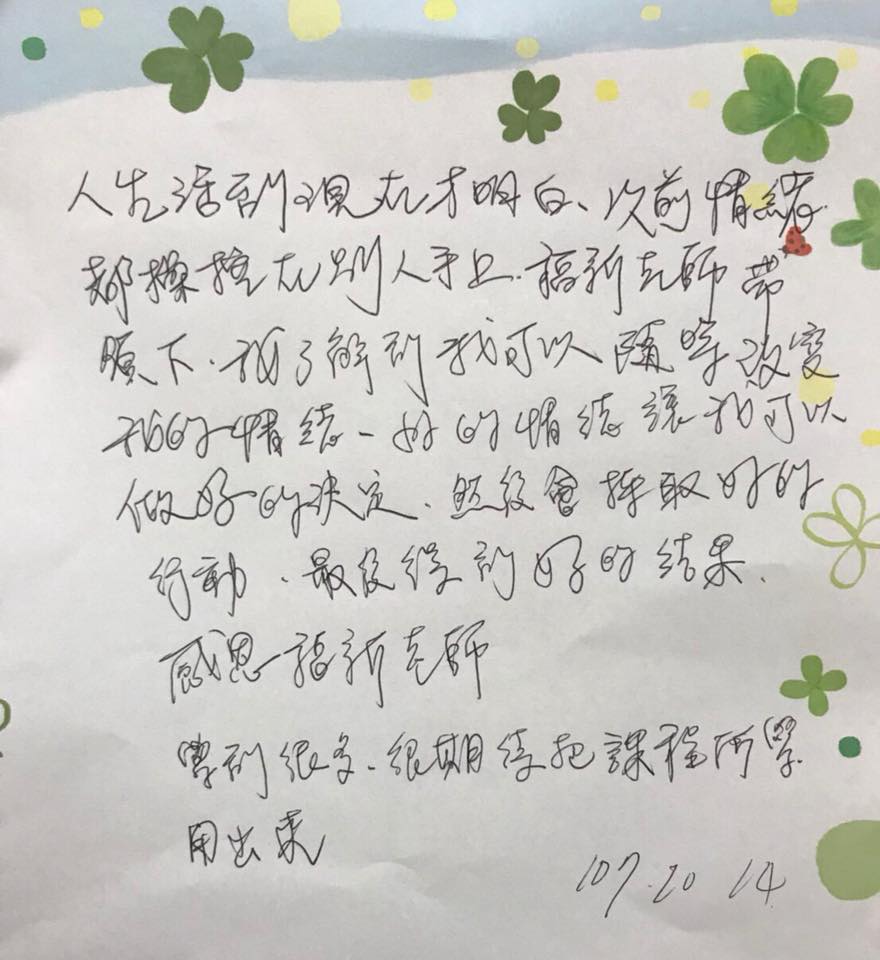 人生活到現在才明白、以前情緒
都操控在別人手上.福新老師帶
領下.我了解到我可以隨時改變
我的情緒-好的情緒讓我可以
做好的決定.然後會採取好的
行動.最後得到好的結果.
感恩福新老師
學到很多.很期待把課程所學
用出來
107.10 14